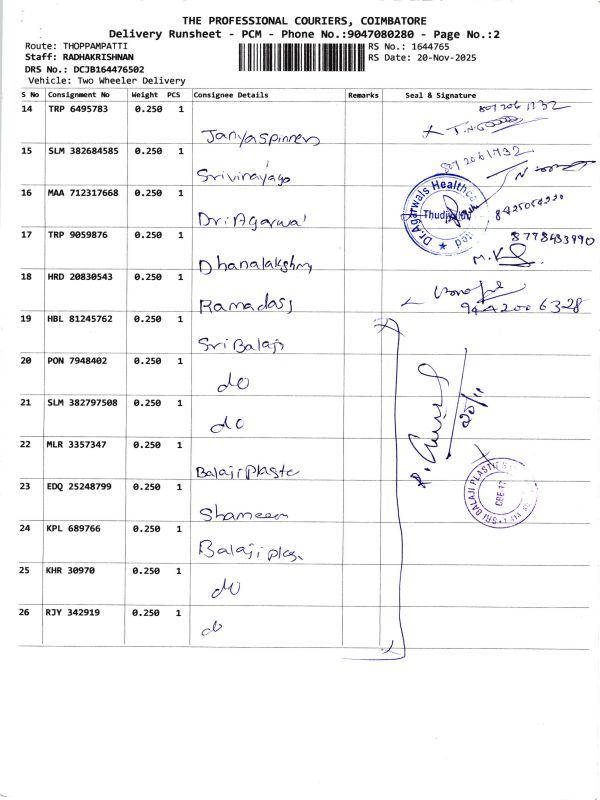 THE PROFESSIONAL COURIERS, COIMBATORE
Delivery Runsheet - PCM - Phone No.:9047080280 - Page No.:2
Route: THOPPAMPATTI
RS No.: 1644765
Staff: RADHAKRISHNAN
RS Date: 20-Nov-2025
DRS No.: DCJB164476502
Vehicle: Two Wheeler Delivery
S No Consignment No Weight PCS Consignee Details Remarks Seal & Signature
14 TRP 6495783 0.250 1
Janyaspinners
15 SLM 382684585 0.250 1
Srivinayaga
16 MAA 712317668 0.250 1
Dr.Agarwal
Dr.Agarwals Healthca
Thudiyalur
17 TRP 9059876 0.250 1
8778433990
Dhanalakshmy
18 HRD 20830543 0.250 1
Ramadass
9442006328
19 HBL 81245762 0.250 1
Sri Balaji
20 PON 7948402 0.250 1
do
21 SLM 382797508 0.250 1
do
20/11
22 MLR 3357347 0.250 1
Balaji plaste
23 EDQ 25248799 0.250 1
Shameem
SRI BALAJI PLASTI
CBE-17
24 KPL 689766 0.250 1
Balaji plas
25 KHR 30970 0.250 1
do
26 RJY 342919 0.250 1
do